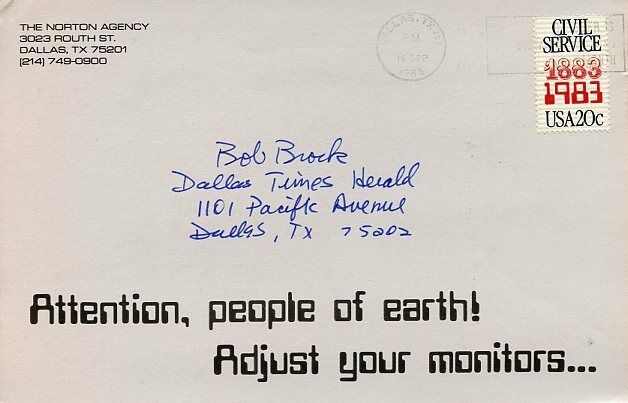 THE NORTON AGENCY
3023 ROUTH ST.
DALLAS, TX 75201
(214) 749-0900
DALLAS, TX
PM
16 SEP
1983
CIVIL
SERVICE
1883
1983
USA20c
Bob Brock
Dallas Times Herald
1101 Pacific Avenue
Dallas, TX 75202
Attention, people of earth!
Adjust your monitors...